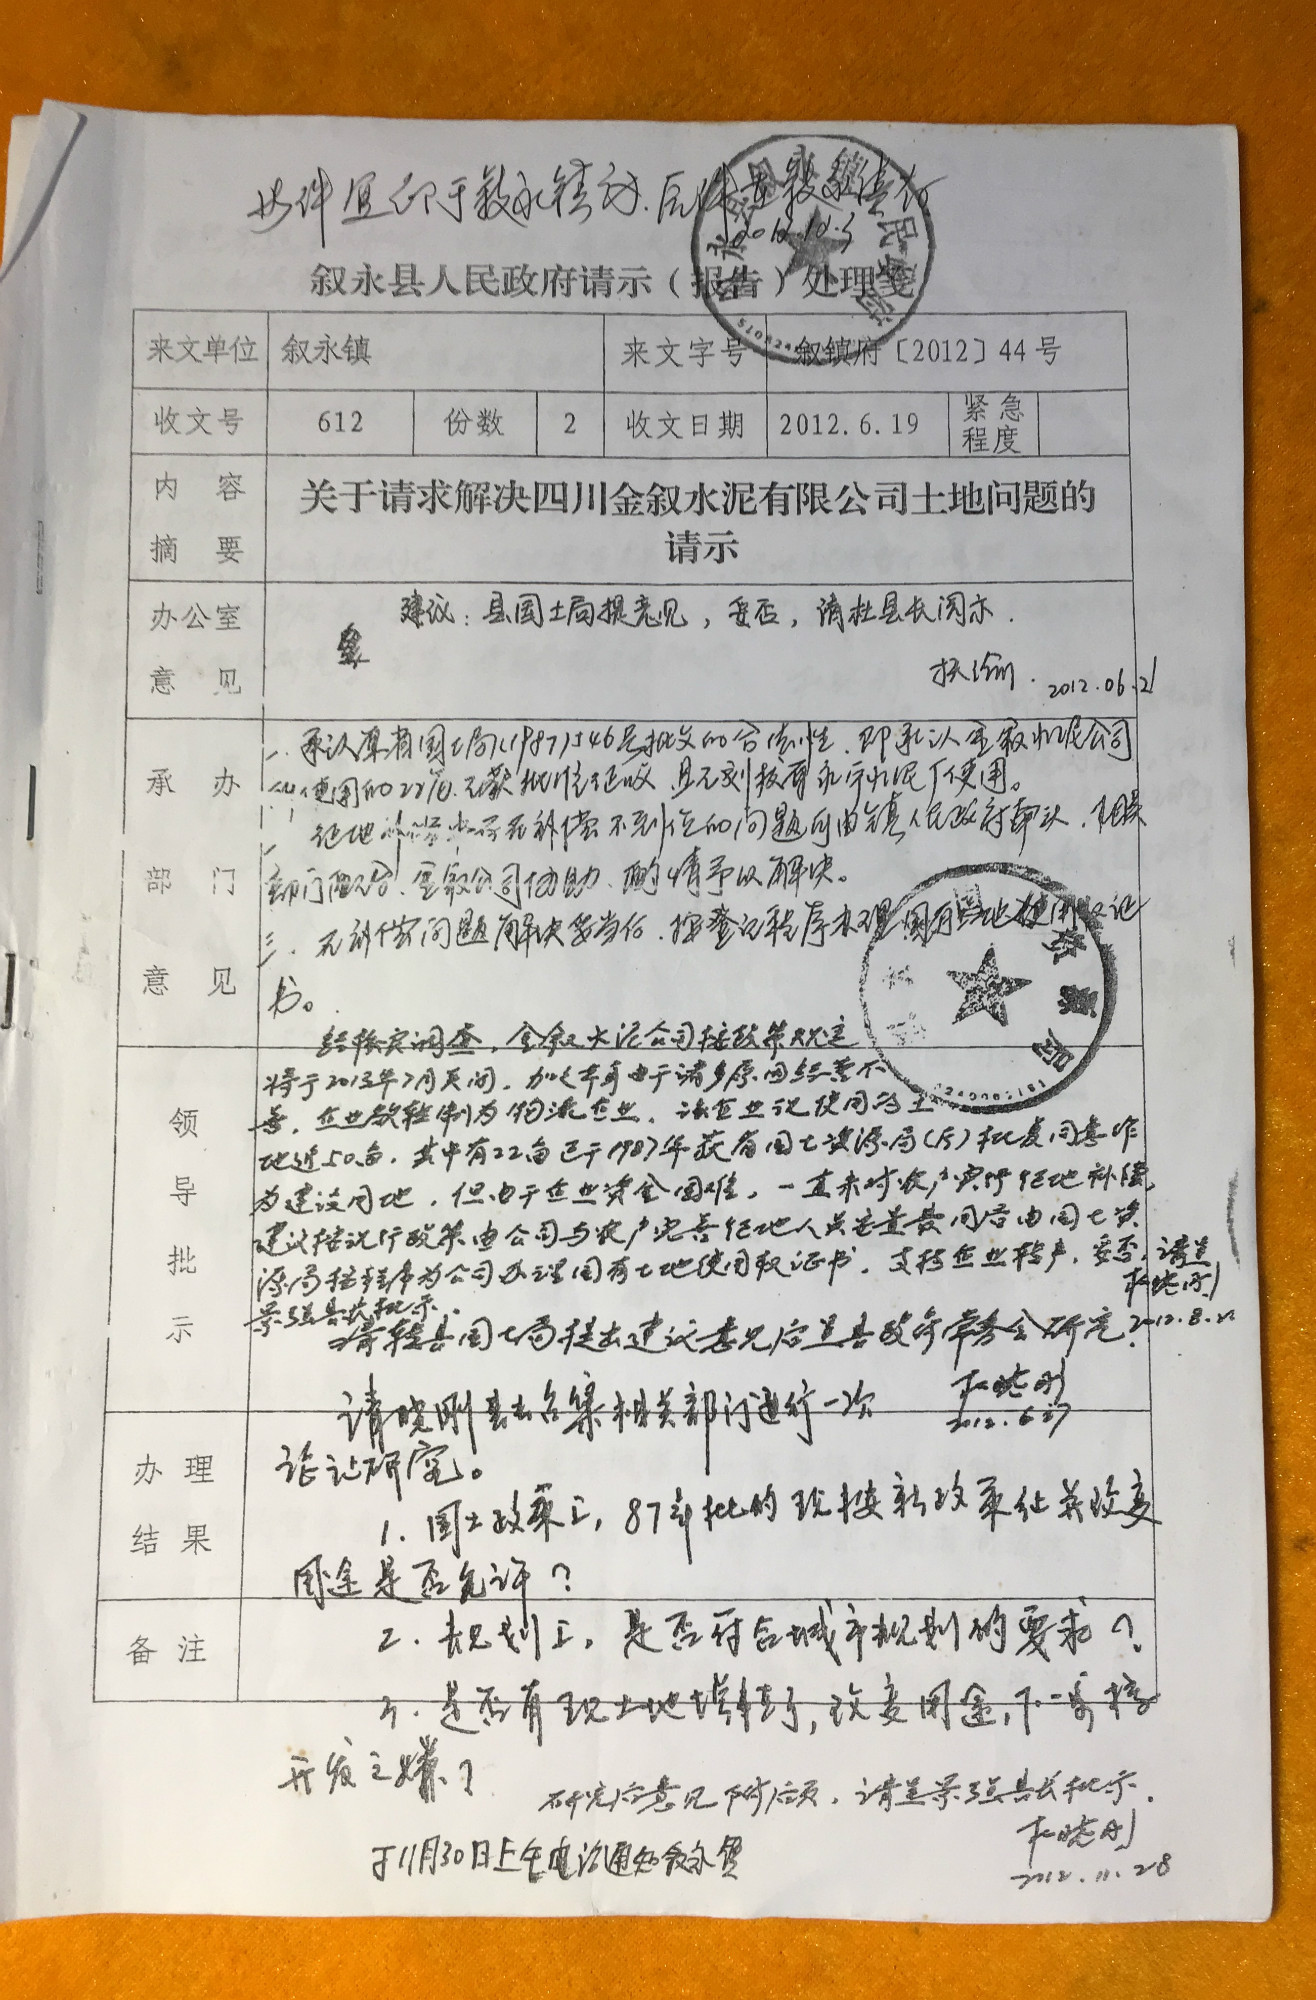 此件复印于叙永镇府.
2012.12.3
叙永县人民政府请示（报告）处理笺
来文单位 叙永镇 来文字号 叙镇府〔2012〕44号
收文号 612 份数 2 收文日期 2012.6.19 紧急程度
内容摘要 关于请求解决四川金叙水泥有限公司土地问题的
请示
办公室意见
建议：县国土局提意见，妥否，请杜县长阅示.
2012.06.21
承办部门意见
一、承认原省国土局(1987)546号批文的合法性，即承认金叙水泥公司
使用的22亩已获批准征收，且已划拨有永宁水泥厂使用。
征地补偿不到位的问题可由镇人民政府牵头，相关
部门配合、金叙公司协助、酌情予以解决。
三、在补偿问题解决妥当后，按登记程序办理国有土地使用权证
书。
领导批示
经核实调查，金叙水泥公司按政策规定
将于2013年7月关闭，加之本身由于诸多原因经营不
善，企业欲转制为物流企业，该企业现使用的土
地近50亩，其中有22亩已于1987年获省国土资源局(厅)批复同意作
为建设用地，但由于企业资金困难，一直未对农户实行征地补偿，
建议按现行政策由公司与农户完善征地人员安置费用后由国土资
源局按程序为公司办理国有土地使用权证书，支持企业转产，妥否，请呈
景强县长批示.
杜晓刚
2012.8.22
请转县国土局提出建议意见后呈县政府常务会研究.
杜晓刚
2012.6.27
请晓刚县长召集相关部门进行一次
论证研究。
办理结果
1. 国土政策上，87年批的现按新政策纵并改变
用途是否允许？
备注
2. 规划上，是否符合城市规划的要求？
3. 是否有现土地转手，改变用途，下一步搞
开发之嫌？
研究后意见附后页，请呈景强县长批示.
杜晓刚
2012.11.28
于11月30日上午电话通知叙永镇